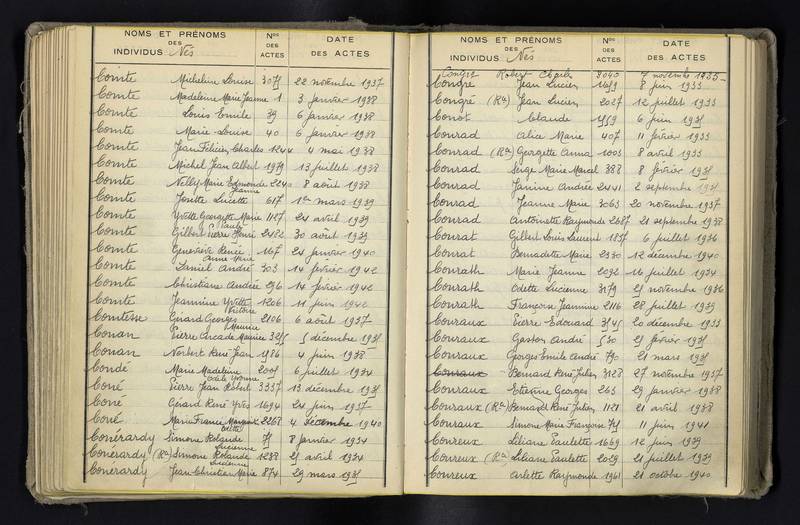 NOMS ET PRÉNOMS DES INDIVIDUS Nés
Nos DES ACTES
DATE DES ACTES
Comte Micheline Louise 3075 22 novembre 1937
Comte Madeleine Marie Jeanne 1 3 janvier 1938
Comte Louis Emile 39 6 janvier 1938
Comte Marie-Louise 40 6 janvier 1938
Comte Jean Félicien Charles 1244 4 mai 1938
Comte Michel Jean Albert 1979 13 juillet 1938
Comte Nelly Marie Edmonde 2240 8 août 1938
Comte Josette Lucette Jeanne 617 1er mars 1939
Comte Yvette Georgette Marie 1127 24 avril 1939
Comte Gilbert Pierre Henri Paul 2482 30 août 1939
Comte Geneviève Renée 167 24 janvier 1940
Comte Daniel André 303 14 février 1942
Comte Christiane Andrée 296 14 février 1942
Comte Jeannine Yvette 1206 11 juin 1942
Comtesse Gérard Georges 2106 6 août 1937
Conan Pierre Arcade Maurice 3255 5 décembre
Conan Norbert René Jean 1586 4 juin 1938
Condé Marie Madeleine 2005 6 juillet 1934
Coné Pierre Jean Robert 3337 13 décembre
Coné Gérard René Yves 1694 24 juin 1937
Coné Marie France 2268 4 décembre 1940
Conérardy Simone Rolande 75 8 janvier 1934
Conérardy (Rn) Simone Rolande Lucienne 1288 25 avril 1934
Conérardy Jean Christian Marie 874 29 mars
NOMS ET PRÉNOMS DES INDIVIDUS Nés
Nos DES ACTES
DATE DES ACTES
Congré Robert Charles 3040 7 novembre 1935
Congré Jean Lucien 1659 8 juin 1933
Congré (Rn) Jean Lucien 2027 12 juillet 1933
Conot Claude 1559 6 juin
Conrad Alice Marie 407 11 février 1933
Conrad (Rn) Georgette Anna 1003 8 avril 1933
Conrad Serge Marie Marcel 388 8 février
Conrad Janine Andrée 2441 2 septembre
Conrad Jeanne Marie 3063 20 novembre 1937
Conrad Antoinette Raymonde 2687 21 septembre 1938
Conrat Gilbert Louis Laurent 1837 6 juillet 1936
Conrat Bernadette Marie 2330 12 décembre 1940
Conrath Marie Jeanne 2092 16 juillet 1934
Conrath Odette Lucienne 3179 25 novembre 1936
Conrath Françoise Jeannine 2116 28 juillet 1939
Conraux Pierre Edouard 3545 20 décembre 1933
Conraux Gaston André 530 25 février
Conraux Georges Emile André 790 21 mars
Conraux Bernard René Julien 3128 27 novembre 1937
Conraux Etienne Georges 263 29 janvier 1938
Conraux (Rn) Bernard René Julien 1121 21 avril 1938
Conraux Simone Marie Françoise 75 11 juin 1941
Conreux Liliane Paulette 1669 12 juin 1939
Conreux (Rn) Liliane Paulette 2059 21 juillet 1939
Conreux Arlette Raymonde 1961 21 octobre 1940